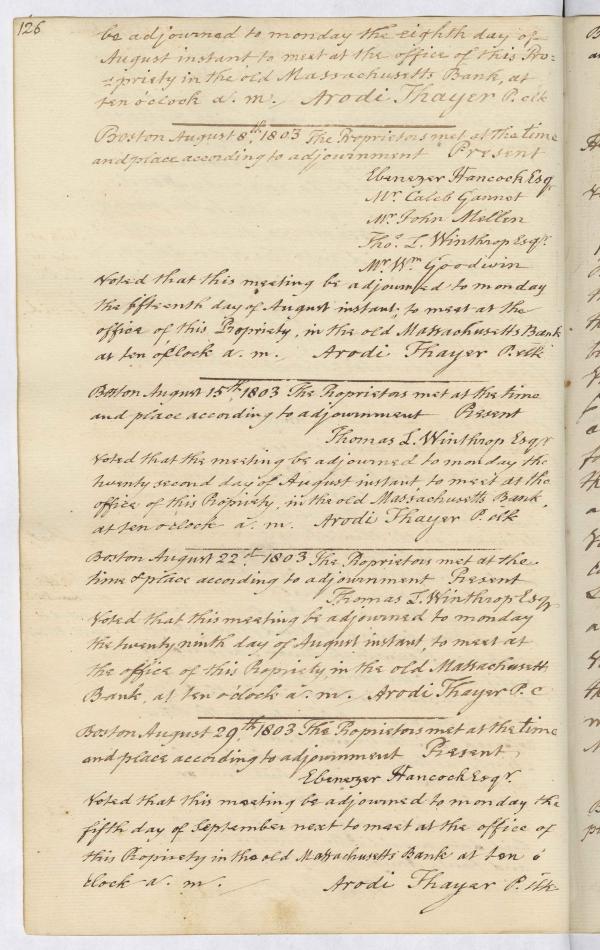 126
be adjourned to monday the eighth day of
August instant to meet at the office of this Pro=
=priety in the old Massachusetts Bank, at
ten o'clock a. m. Arodi Thayer P. clk
Boston August 8th 1803 The Proprietors met at the time
and place according to adjournment Present
Ebenezer Hancock Esqr
Mr. Caleb Gannet
Mr. John Mellen
Thos. L. Winthrop Esqr.
Mr. Wm. Goodwin
Voted that this meeting be adjourned to monday
the fifteenth day of August instant, to meet at the
office of this Propriety, in the old Massachusetts Bank
at ten o'clock a. m. Arodi Thayer P. clk
Boston August 15th 1803 The Proprietors met at the time
and place according to adjournment Present
Thomas L. Winthrop Esqr
Voted that the meeting be adjourned to monday the
twenty second day of August instant, to meet at the
office of this Propriety, in the old Massachusetts Bank,
at ten o'clock a. m. Arodi Thayer P. clk
Boston August 22d 1803 The Proprietors met at the
time & place according to adjournment Present
Thomas L. Winthrop Esqr
Voted that this meeting be adjourned to monday
the twenty ninth day of August instant, to meet at
the office of this Propriety, in the old Massachusett
Bank, at ten o'clock a. m. Arodi Thayer P. C
Boston August 29th 1803 The Proprietors met at the time
and place according to adjournment Present
Ebenezer Hancock Esqr.
Voted that this meeting be adjourned to monday the
fifth day of September next to meet at the office of
this Propriety in the old Massachusetts Bank at ten o'
clock a. m. Arodi Thayer P. clk